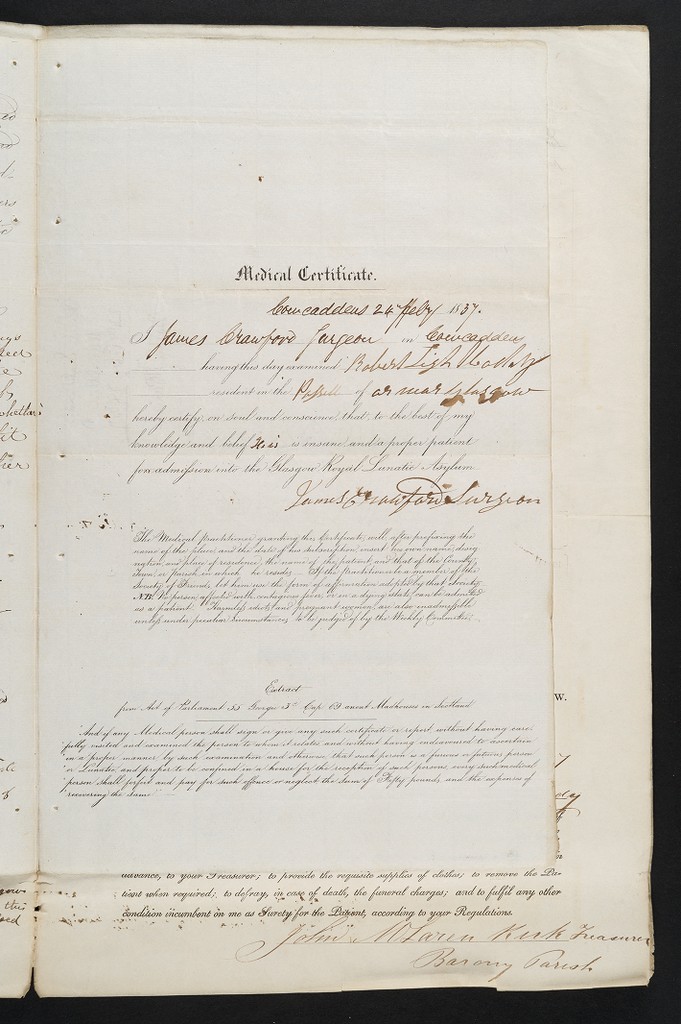 Medical Certificate.
Cowcaddens 24 Feby 1837.
I James Crawford Surgeon in Cowcaddens
having this day examined Robert
resident in the of or near Glasgow
hereby certify, on soul and conscience, that, to the best of my
knowledge and belief He is is insane, and a proper patient
for admission into the Glasgow Royal Lunatic Asylum
James Crawford Surgeon
The Medical Practitioner granting this Certificate, will, after prefixing the
name of the place and the date of his subscription, insert his own name, desig-
nation, and place of residence, the name of the patient, and that of the County,
Town, or Parish in which he resides. If the Practitioner be a member of the
Society of Friends, let him use the form of affirmation adopted by that Society.
N.B. No person affected with contagious fever, or in a dying state, can be admitted
as a patient. Harmless idiots, and pregnant women, are also inadmissible
unless under peculiar circumstances, to be judged of by the Weekly Committee.
Extract
from Act of Parliament 55 George 3d Cap 69 anent Madhouses in Scotland
"And if any Medical person shall sign or give any such certificate or report without having care-
fully visited and examined the person to whom it relates and without having endeavoured to ascertain
in a proper manner by such examination and otherwise that such person is a furious or fatuous person
or Lunatic and proper to be confined in a house for the reception of such persons, every such medical
person shall forfeit and pay for such offence or neglect the sum of Fifty pounds, and the expenses of
recovering the same"
W.
advance, to your Treasurer; to provide the requisite supplies of clothes; to remove the Pa-
tient when required; to defray, in case of death, the funeral charges; and to fulfil any other
condition incumbent on me as Surety for the Patient, according to your Regulations.
John McLaren Kirk Treasurer
Barony Parish